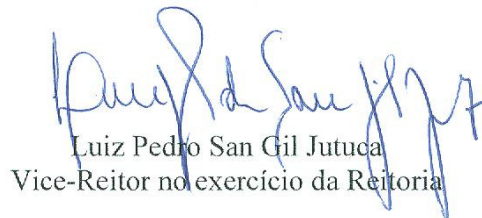 Luiz Pedro San Gil Jutuca
Vice-Reitor no exercício da Reitoria